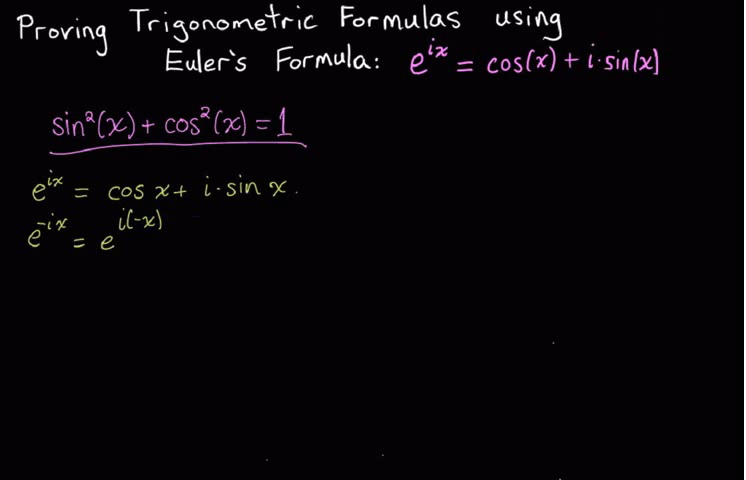 Proving Trigonometric Formulas using
Euler's Formula: e^{ix} = cos(x) + i·sin(x)
sin²(x) + cos²(x) = 1
e^{ix} = cos x + i·sin x.
e^{-ix} = e^{i(-x)}